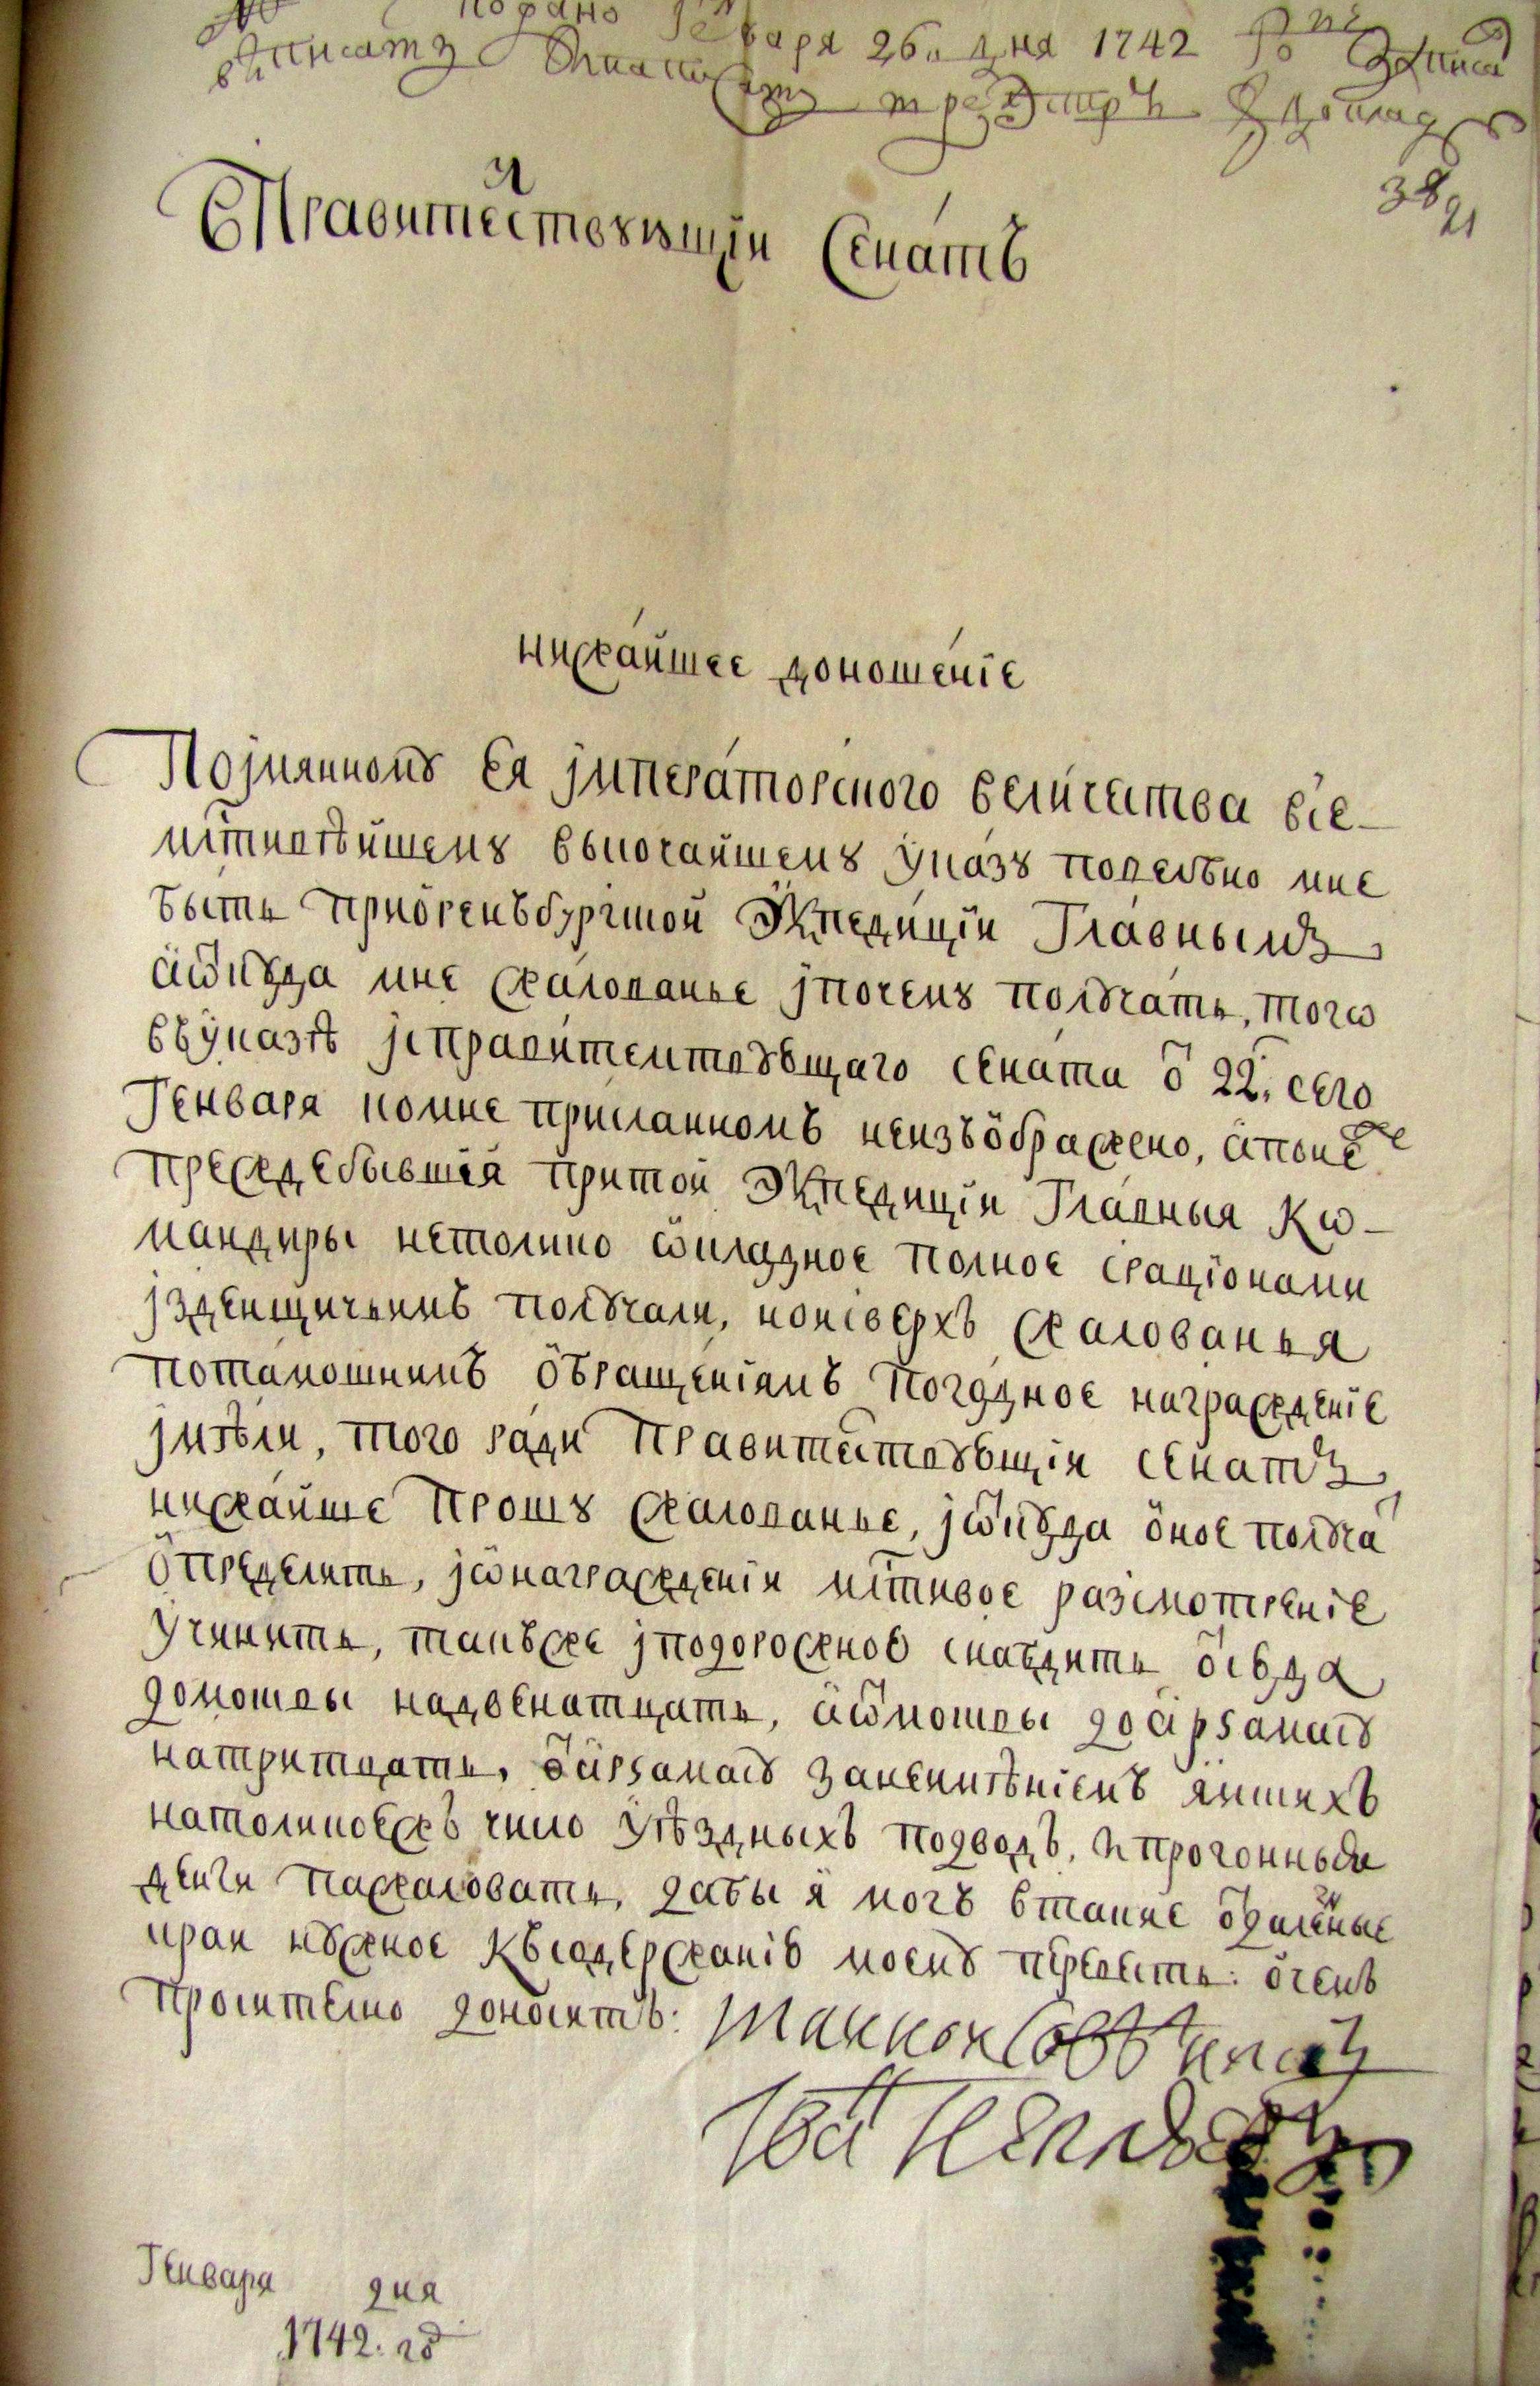 подано Генваря 26 дня 1742 го записат
в книгу
Правителствующїи Сенатъ
нижайшее доношенїе
Поимянному Ея Императорского величества все-
млстивѣйшему высочайшему указу повелѣно мне
быть приоренъбургской Экпедицїи Главнымъ
аѿкуда мне жалованье ипочему получать, того
въуказѣ исправителствующаго сената о 22: сего
Генваря комне присланномъ неизъображено, апонеже
преждебывшїя притои Экпедицїи Главныя Ко-
мандиры нетолико ѡкладное полное срацїонами
изденщичьимъ получали, ноисверхъ жалованья
потамошнимъ обращенїямъ погодное награжденїе
имѣли, того ради Правителствующїи сенатъ
нижайше Прошу жалованье, иѿкуда оное получа
определить, иѡнагражденїи млстивое разсмотренїе
учинить, такъже иподорожною снабдить отсюда
домосквы надвенатцать, аѿмосквы доарзамасу
натритцать, отарзамасу занеимѣнїемъ ямскихъ
натоликоежъ число уѣздныхъ подводъ, ипрогонныя
денги пажаловать, дабы я могъ втакие отдаленные
краи нужное къ содержанїю моему перевесть: очемъ
просително доноситъ: таинои советникъ
Иван Неплюевъ
Генваря дня
1742: го